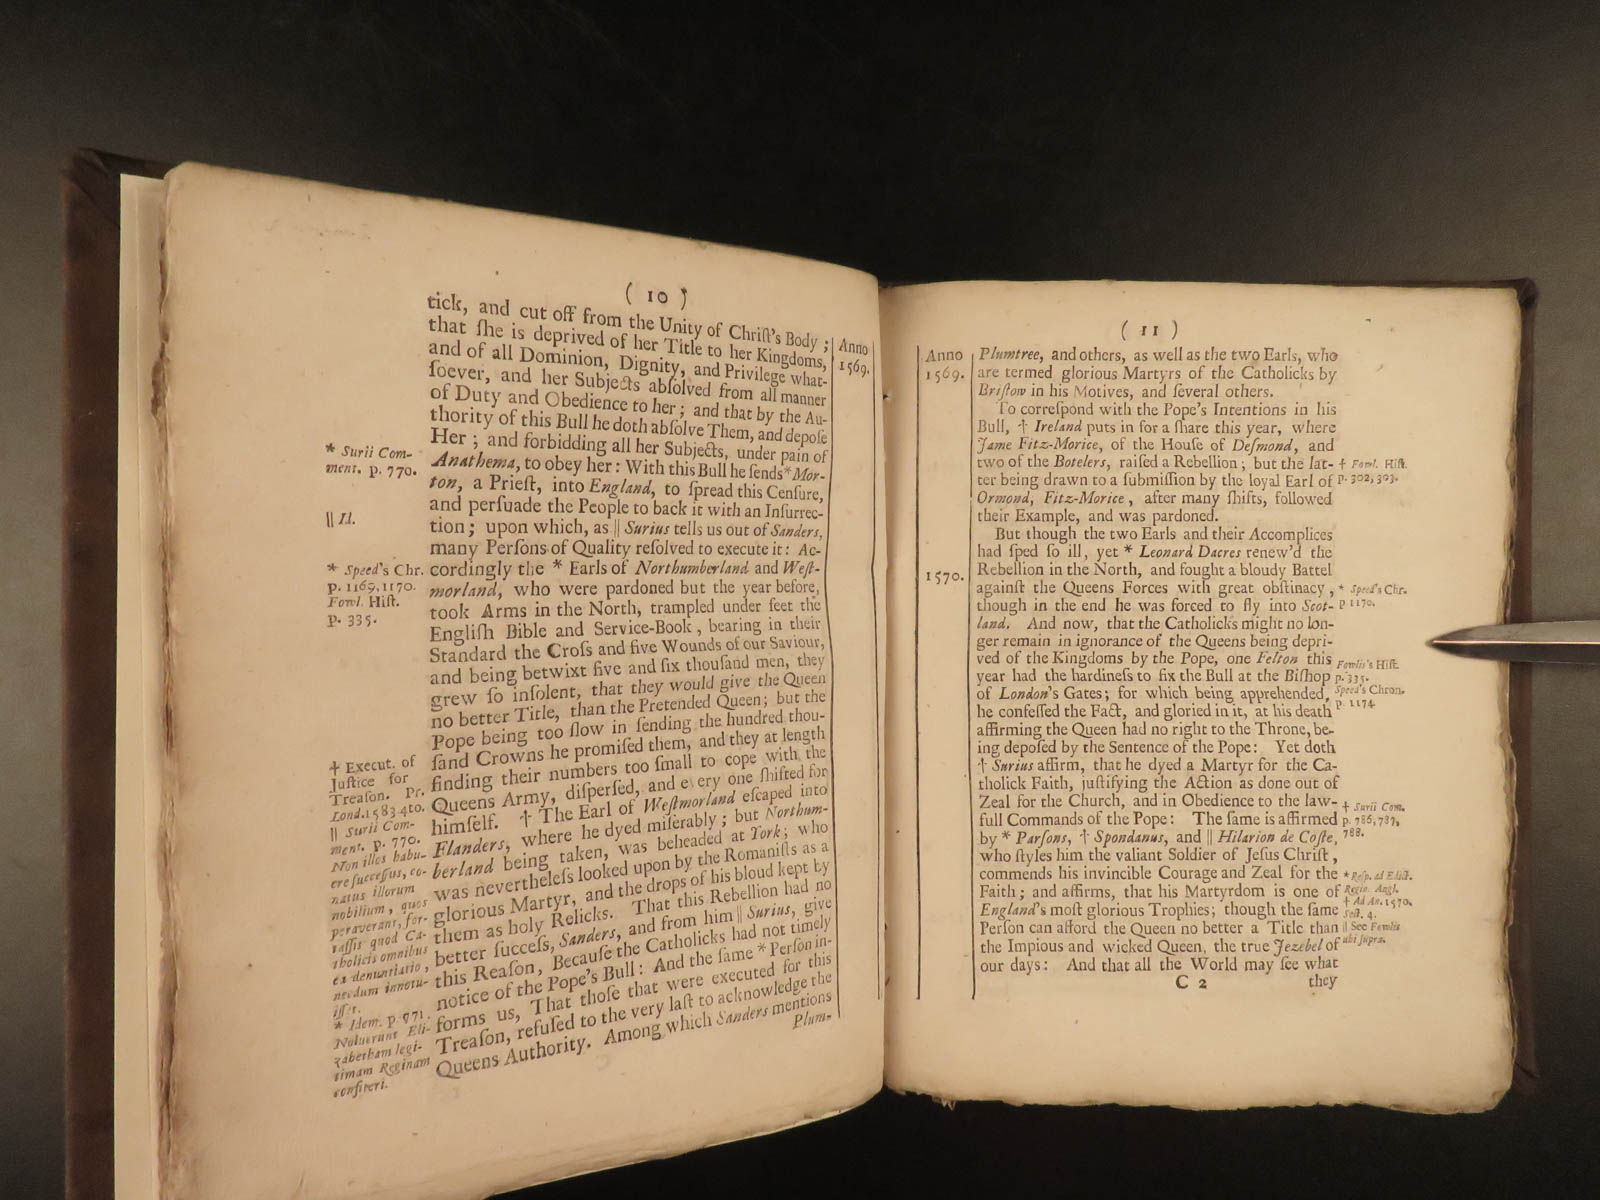 ( 10 )
tick, and cut off from the Unity of Chriſt's Body ;
that ſhe is deprived of her Title to her Kingdoms,
and of all Dominion, Dignity, and Privilege what-
ſoever, and her Subjects abſolved from all manner
of Duty and Obedience to her ; and that by the Au-
thority of this Bull he doth abſolve Them, and depoſe
Her ; and forbidding all her Subjects, under pain of
Anathema, to obey her : With this Bull he ſends * Mor-
ton, a Prieſt, into England, to ſpread this Cenſure,
and perſuade the People to back it with an Inſurrec-
tion ; upon which, as || Surius tells us out of Sanders,
many Perſons of Quality reſolved to execute it : Ac-
cordingly the * Earls of Northumberland and Weſt-
morland, who were pardoned but the year before,
took Arms in the North, trampled under feet the
Engliſh Bible and Service-Book , bearing in their
Standard the Croſs and five Wounds of our Saviour,
and being betwixt five and ſix thouſand men, they
grew ſo inſolent, that they would give the Queen
no better Title, than the Pretended Queen ; but the
Pope being too ſlow in ſending the hundred thou-
ſand Crowns he promiſed them, and they at length
finding their numbers too ſmall to cope with the
Queens Army, diſperſed, and every one ſhifted for
himſelf. † The Earl of Weſtmorland eſcaped into
Flanders, where he dyed miſerably ; but Northum-
berland being taken, was beheaded at York ; who
was nevertheleſs looked upon by the Romaniſts as a
glorious Martyr, and the drops of his bloud kept by
them as holy Relicks. That this Rebellion had no
better ſucceſs, Sanders, and from him || Surius, give
this Reaſon, Becauſe the Catholicks had not timely
notice of the Pope's Bull : And the ſame * Perſon in-
forms us, That thoſe that were executed for this
Treaſon, refuſed to the very laſt to acknowledge the
Queens Authority. Among which Sanders mentions
Plum-
Anno
1569.
* Surii Com-
ment. p. 770.
|| Id.
* Speed's Chr.
p. 1169, 1170.
Fowl. Hiſt.
p. 335.
† Execut. of
Juſtice for
Treaſon. Pr.
Lond. 1583. 4to.
|| Surii Com-
ment. p. 770.
Non illos habu-
ere ſucceſſus, co-
natus illorum
nobilium, quos
peraverant, for-
taſſis quod Ca-
tholicis omnibus
ea denuntiatio,
necdum innotu-
iſſet.
* Idem. p. 771.
Noluerunt Eli-
zabetham legi-
timam Reginam
confiteri.
( 11 )
Anno
1569.
1570.
Plumtree, and others, as well as the two Earls, who
are termed glorious Martyrs of the Catholicks by
Briſtow in his Motives, and ſeveral others.
To correſpond with the Pope's Intentions in his
Bull, † Ireland puts in for a ſhare this year, where
Jame Fitz-Morice, of the Houſe of Deſmond, and
two of the Botelers, raiſed a Rebellion ; but the lat-
ter being drawn to a ſubmiſſion by the loyal Earl of
Ormond, Fitz-Morice , after many ſhifts, followed
their Example, and was pardoned.
But though the two Earls and their Accomplices
had ſped ſo ill, yet * Leonard Dacres renew'd the
Rebellion in the North, and fought a bloudy Battel
againſt the Queens Forces with great obſtinacy ,
though in the end he was forced to fly into Scot-
land. And now, that the Catholicks might no lon-
ger remain in ignorance of the Queens being depri-
ved of the Kingdoms by the Pope, one Felton this
year had the hardineſs to fix the Bull at the Biſhop
of London's Gates ; for which being apprehended,
he confeſſed the Fact, and gloried in it, at his death
affirming the Queen had no right to the Throne, be-
ing depoſed by the Sentence of the Pope : Yet doth
† Surius affirm, that he dyed a Martyr for the Ca-
tholick Faith, juſtifying the Action as done out of
Zeal for the Church, and in Obedience to the law-
full Commands of the Pope : The ſame is affirmed
by * Parſons, † Spondanus, and || Hilarion de Coſte,
who ſtyles him the valiant Soldier of Jeſus Chriſt ,
commends his invincible Courage and Zeal for the
Faith ; and affirms, that his Martyrdom is one of
England's moſt glorious Trophies ; though the ſame
Perſon can afford the Queen no better a Title than
the Impious and wicked Queen, the true Jezebel of
our days : And that all the World may ſee what
C 2 they
† Fowl. Hiſt.
p. 302, 303.
* Speed's Chr.
p 1170.
Fowlis's Hiſt.
p. 335.
Speed's Chron.
p. 1174
† Surii Com.
p. 786, 787,
788.
* Reſp. ad Edict.
Regin. Angl.
† Ad An. 1570.
Sect. 4.
|| See Fowlis
ubi ſupra.